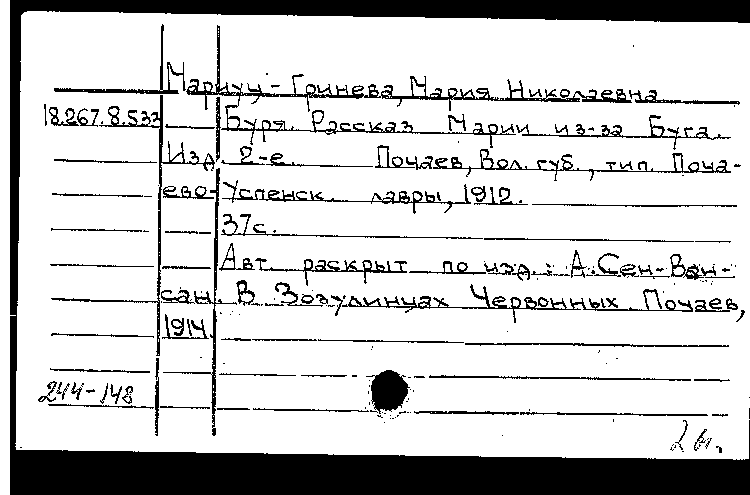 Марцуц-Гринева, Мария Николаевна
18.267.8.533 Буря. Рассказ Марии из-за Буга.
Изд. 2-е. Почаев, Вол. губ., тип. Поча-
ево-Успенск. лавры, 1912.
37с.
Авт. раскрыт по изд.: А.Сен-Вен-
сан. В Зозулинцах Червонных. Почаев,
1914.
244-148